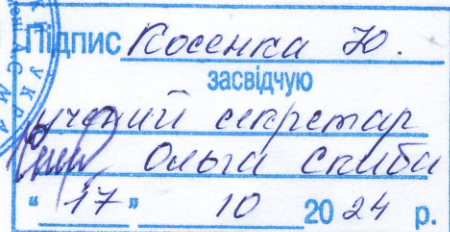 Підпис Косенка Ю.
засвідчую
учений секретар
Ольга Скиба
"17" 10 2024 р.